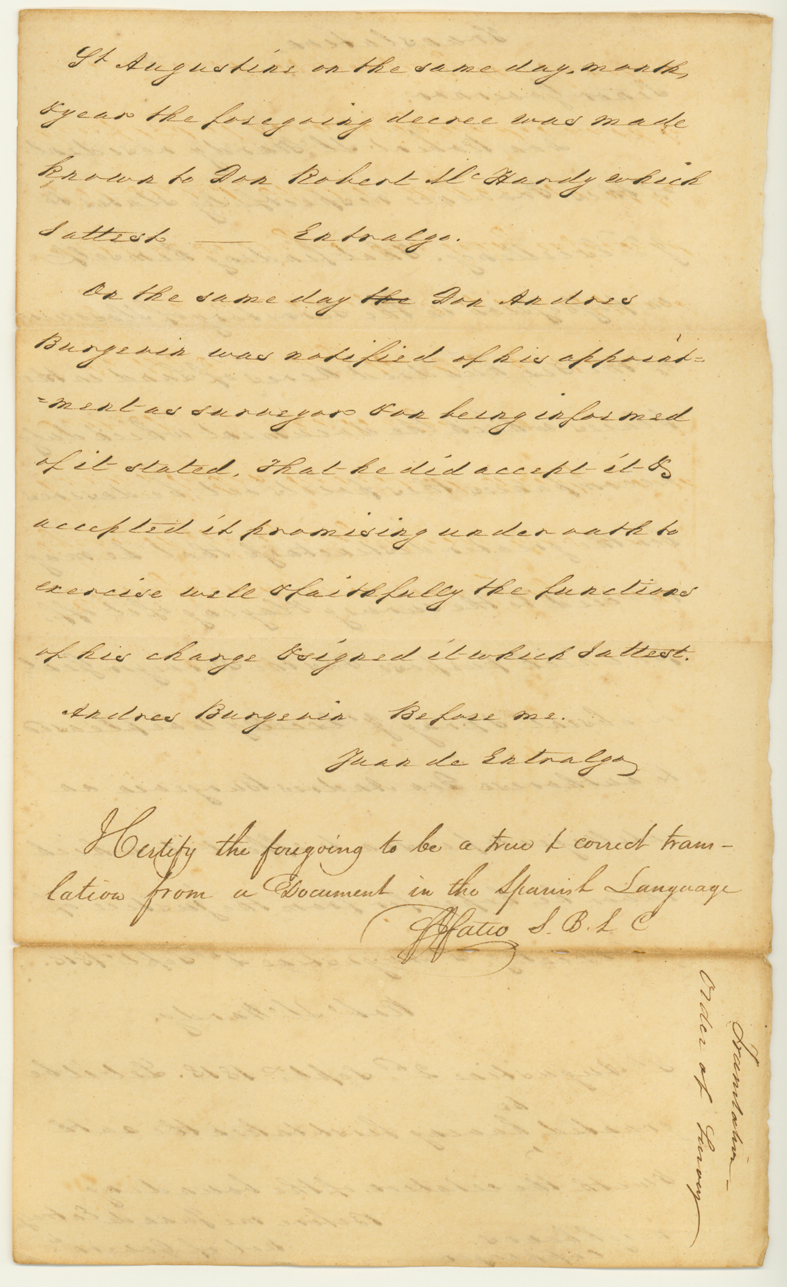 St Augustine on the same day, month,
& year the foregoing decree was made
known to Don Robert McHardy which
I attest —— Entralgo.
On the same day the Don Andres
Burgevin was notified of his appoint=
=ment as surveyor & on being informed
of it stated, That he did accept it &
accepted it promising under oath to
exercise well & faithfully the functions
of his charge & signed it which I attest.
Andres Burgevin Before me.
Juan de Entralgo
I Certify the foregoing to be a true & correct trans-
lation from a Document in the Spanish Language
Fatio S. B. L. C
Translation
Order of Survey